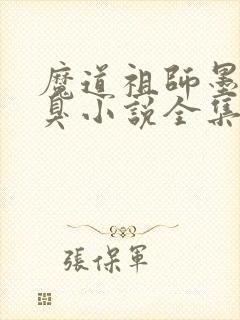 魔道祖師墨
臭小說全集
張保軍